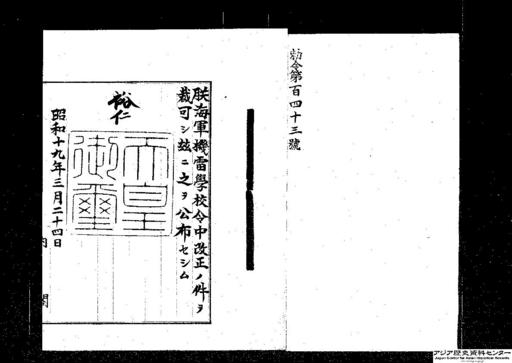 勅令第百四十三號
朕海軍機雷學校令中改正ノ件ヲ
裁可シ玆ニ之ヲ公布セシム
裕仁
天皇
御璽
昭和十九年三月二十四日
内 閣
アジア歴史資料センター
Japan Center for Asian Historical Records